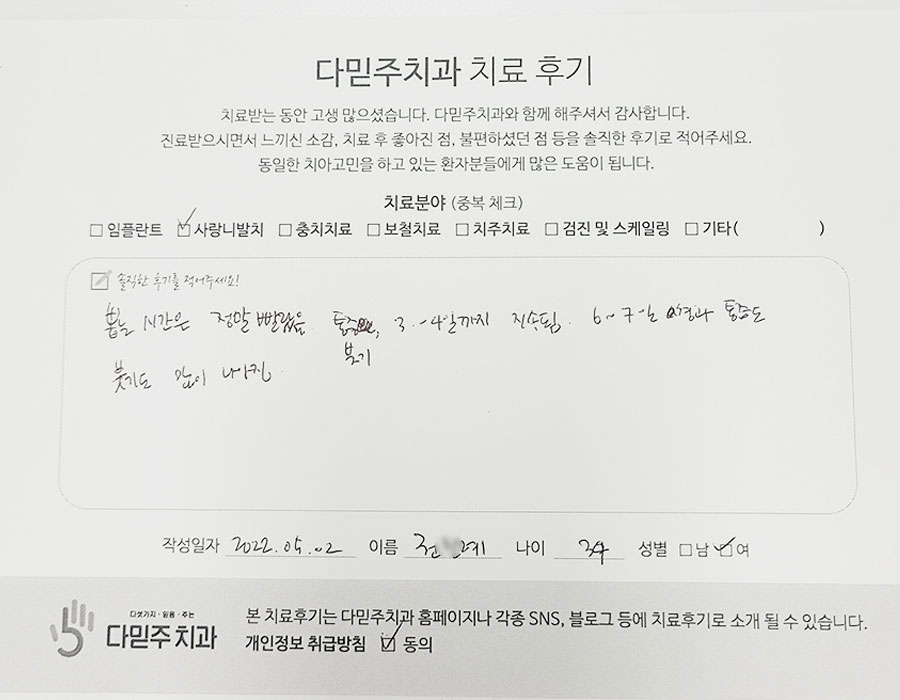 다믿주치과 치료 후기
치료받는 동안 고생 많으셨습니다. 다믿주치과와 함께 해주셔서 감사합니다.
진료받으시면서 느끼신 소감, 치료 후 좋아진 점, 불편하셨던 점 등을 솔직한 후기로 적어주세요.
동일한 치아고민을 하고 있는 환자분들에게 많은 도움이 됩니다.
치료분야 (중복 체크)
임플란트 사랑니발치 충치치료 보철치료 치주치료 검진 및 스케일링 기타( )
솔직한 후기를 적어주세요!
뽑는 시간은 정말 빨랐음. 통증, 3~4일까지 지속됨. 6~7일 통증도
붓기
붓기도 많이 나아짐.
작성일자 2022.05.02 이름 나이 34 성별 남 여
다섯가지·믿음·주는
다믿주치과
본 치료후기는 다믿주치과 홈페이지나 각종 SNS, 블로그 등에 치료후기로 소개 될 수 있습니다.
개인정보 취급방침 동의